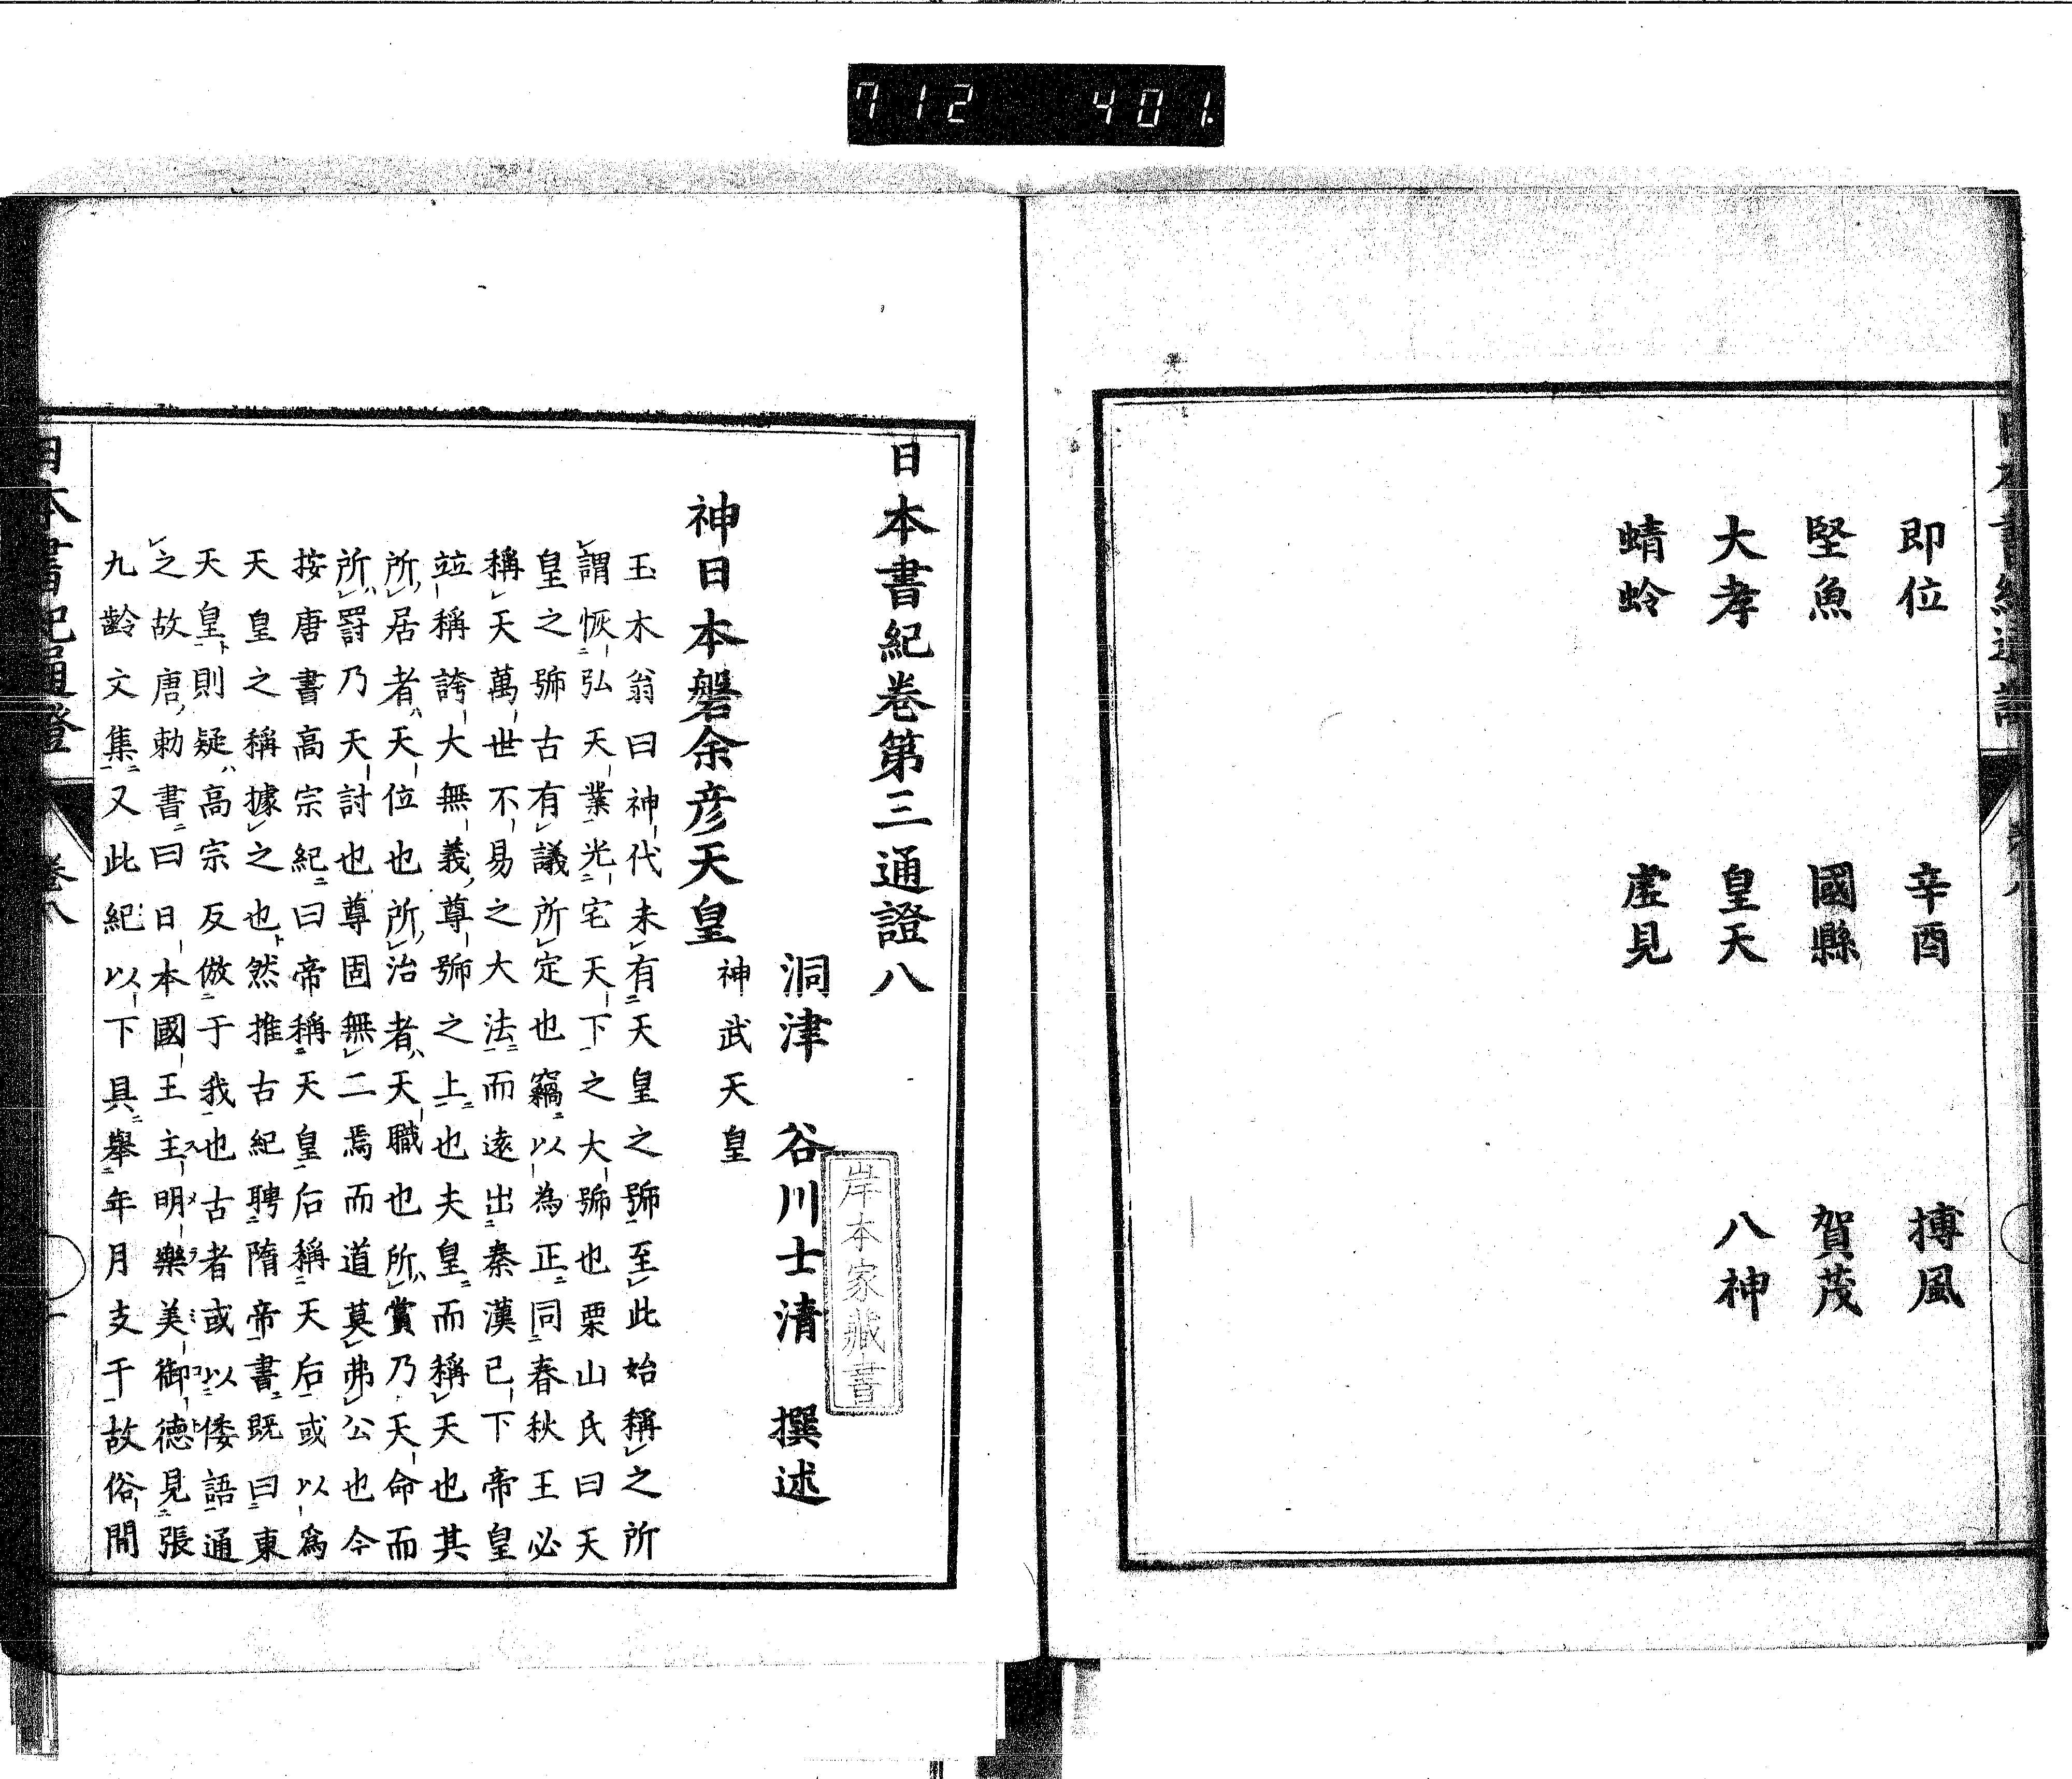 712 401
即位 辛酉 搏風
堅魚 國縣 賀茂
大孝 皇天 八神
蜻蛉 虛見
日本書紀卷第三通證八
洞津 谷川士清 撰述
岸本家藏書
神日本磐余彦天皇 神武天皇
玉木翁曰神代未有天皇之號至此始稱之所
謂恢弘天業光宅天下之大號也栗山氏曰天
皇之號古有議所定也竊以為正同春秋王必
稱天萬世不易之大法而遠出秦漢已下帝皇
竝稱誇大無義尊號之上也夫皇而稱天也其
所居者天位也所治者天職也所賞乃天命而
所罸乃天討也尊固無二焉而道莫弗公也今
按唐書高宗紀曰帝稱天皇后稱天后或以爲
天皇之稱據之也然推古紀聘隋帝書既曰東
天皇則疑高宗反倣于我也古者或以倭語通
之故唐勅書曰日本國王主明樂美御德見張
九齡文集又此紀以下具舉年月支干故俗間
日本書紀通證 卷八 一